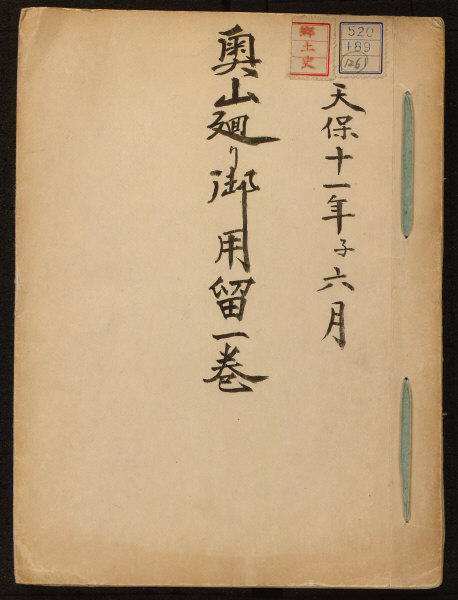 天保十一年子六月
奥山廻り御用留一巻
郷土史
520
189
(126)